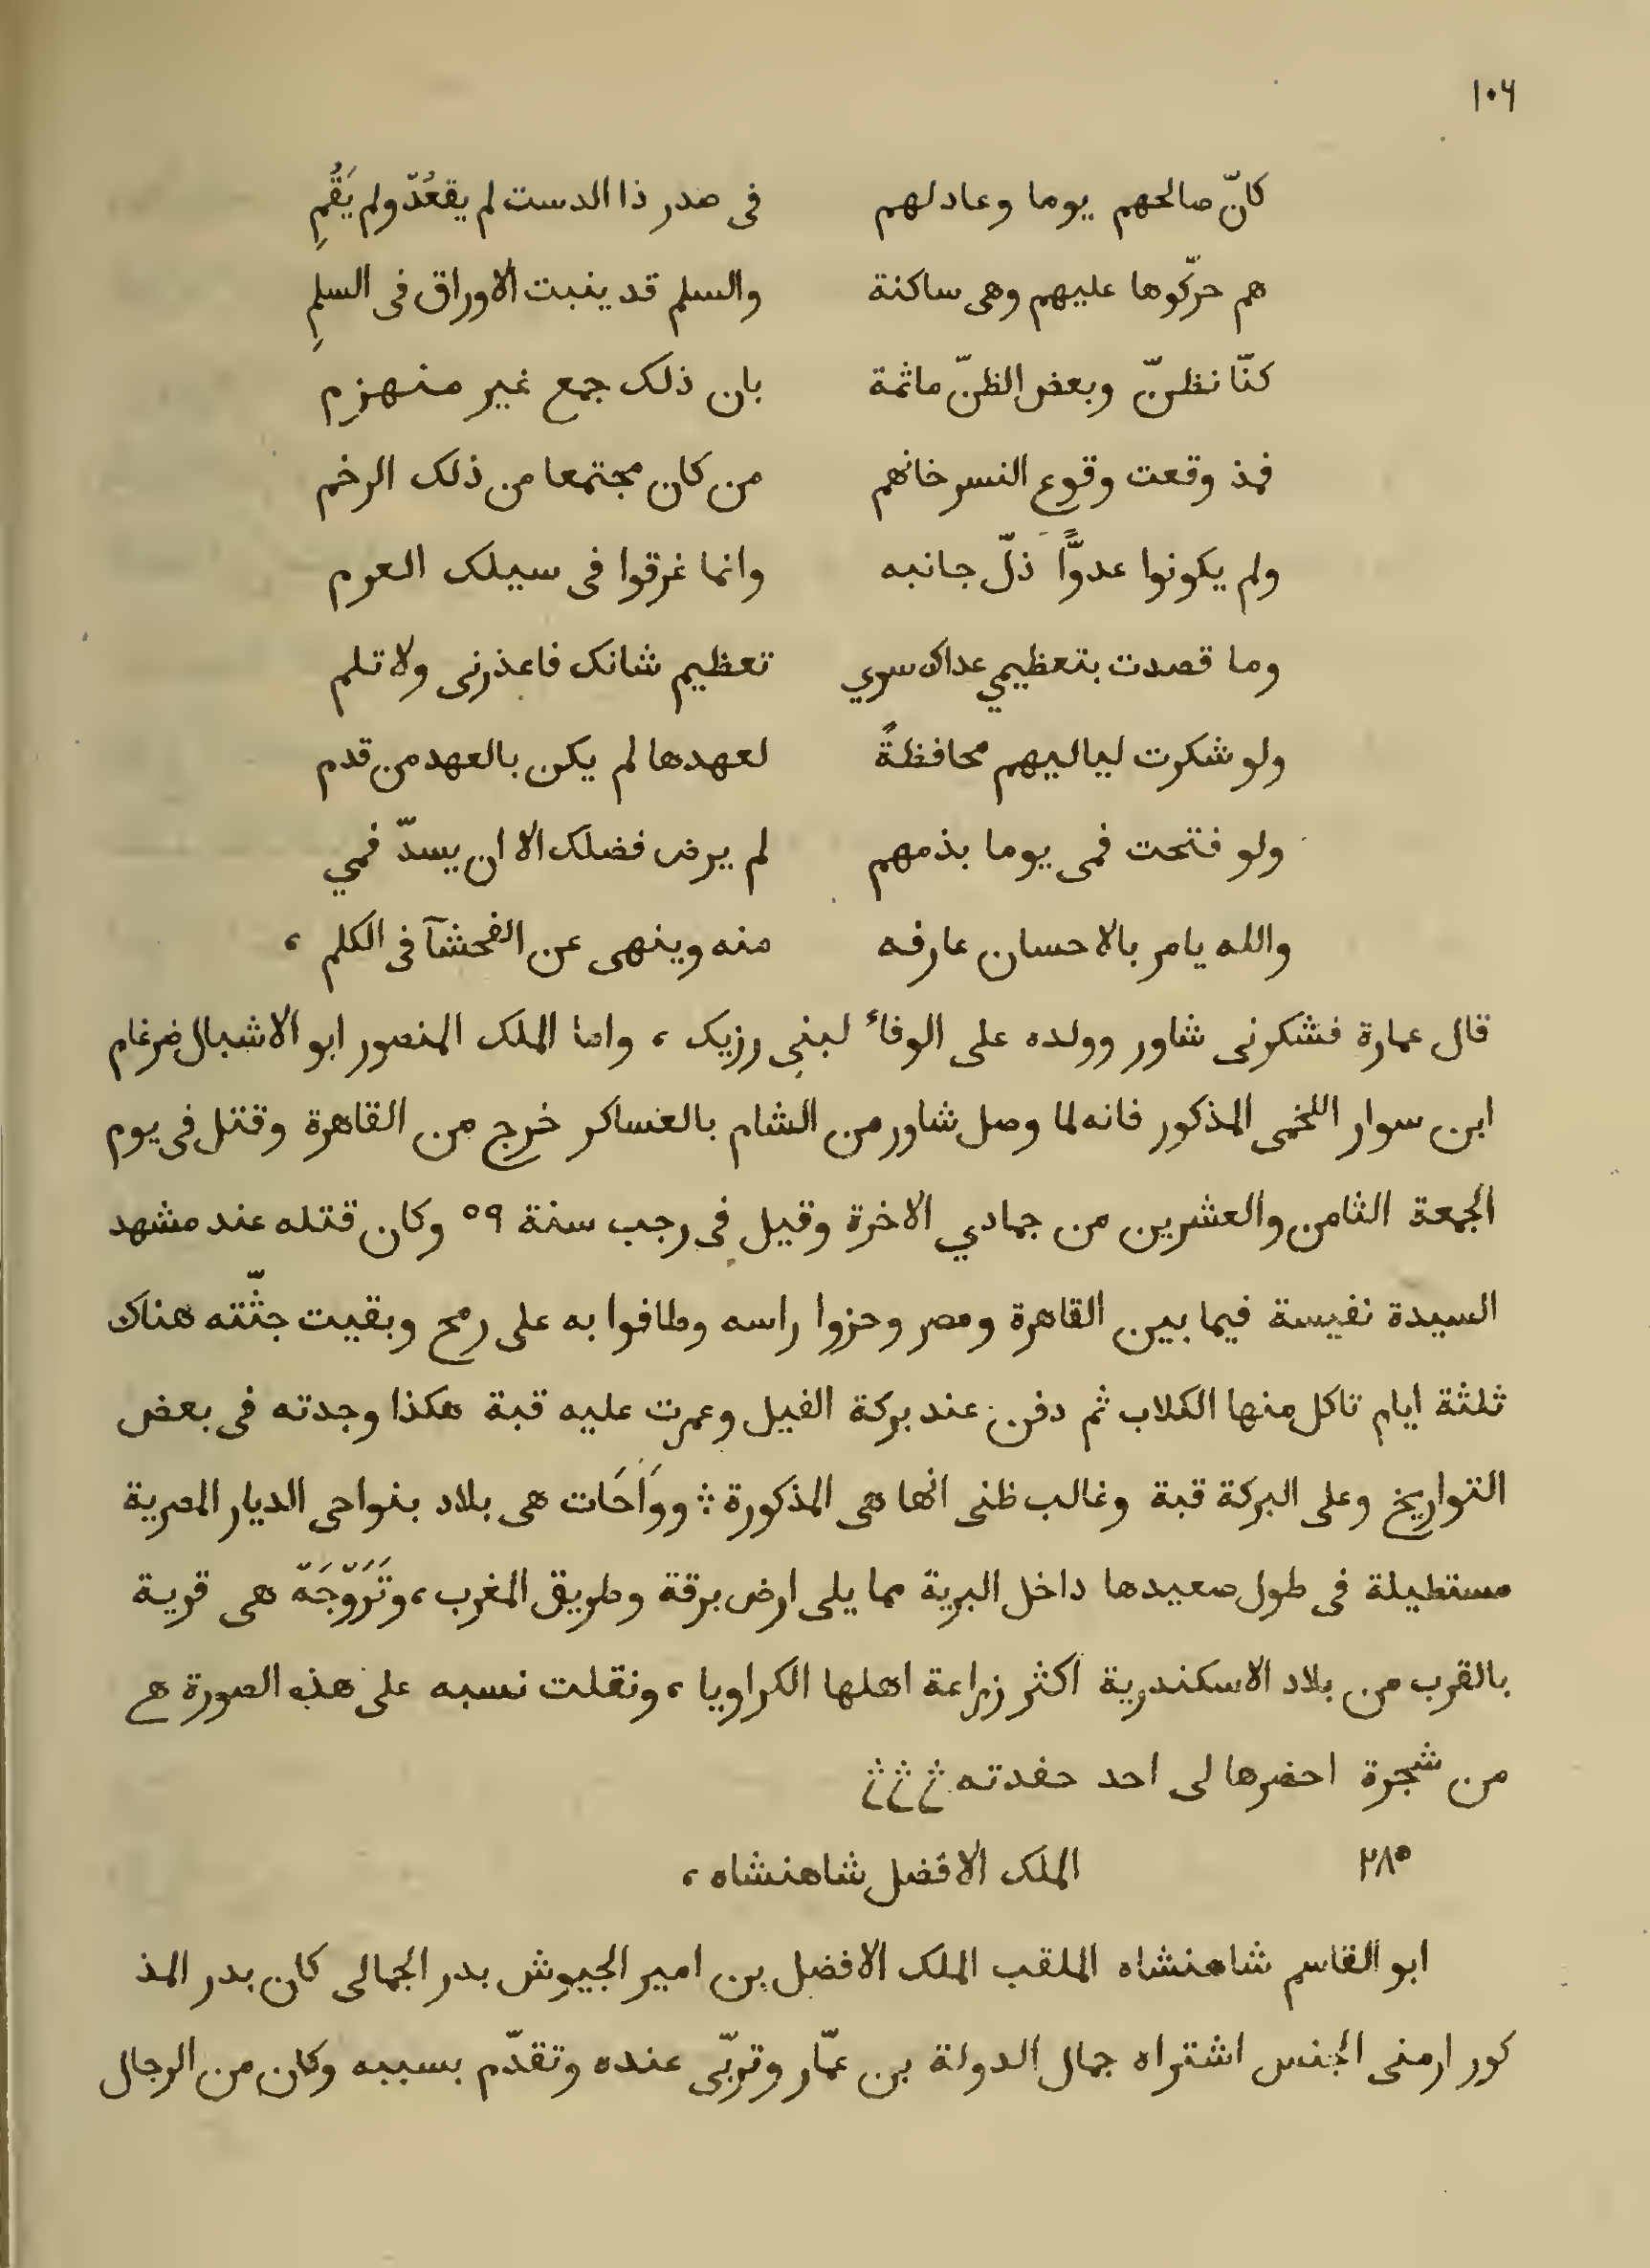 ١٠٦
كانّ صالحهم يوما وعادلهم في صدر ذا الدست لم يقعُدْ ولم يَقُمِ
هم حرّكوها عليهم وهى ساكنة والسلم قد ينبت الاوراق فى السلمِ
كنّا نظنّ وبعض الظنّ ماثمة بان ذلك جمع غير منهزم
فمذ وقعت وقوع النسر خانهم من كان مجتمعا من ذلك الرخم
ولم يكونوا عدوًّا ذلّ جانبه وانما غرقوا فى سيلك العرم
وما قصدت بتعظيمي عداك سوي تعظيم شانك فاعذرنى ولا تلم
ولو شكرت لياليهم محافظةً لعهدها لم يكن بالعهد من قدم
ولو فتحت فمى يوما بذمهم لم يرض فضلك الا ان يسدّ فمي
والله يامر بالاحسان عارفه منه وينهى عن الفحشآ فى الكلم ،
قال عمارة فشكرنى شاور وولده على الوفاء لبنى رزيك ، واما الملك المنصور ابو الاشبال ضرغام
ابن سوار اللخمى المذكور فانه لما وصل شاور من الشام بالعساكر خرج من القاهرة وقتل فى يوم
الجمعة الثامن والعشرين من جمادي الاخرة وقيل فى رجب سنة ٥٩ وكان قتله عند مشهد
السيدة نفيسة فيما بين القاهرة ومصر وحزوا راسه وطافوا به على رمح وبقيت جثّته هناك
ثلثة ايام تاكل منها الكلاب ثم دفن عند بركة الفيل وعمرت عليه قبة هكذا وجدته فى بعض
التواريخ وعلى البركة قبة وغالب ظنى انها هى المذكورة ؞ ووَاحَات هى بلاد بنواحى الديار المصرية
مستطيلة فى طول صعيدها داخل البرية مما يلى ارض برقة وطريق المغرب ، وتَرَوّجَة هى قرية
بالقرب من بلاد الاسكندرية اكثر زراعة اهلها الكراويا ، ونقلت نسبه على هذه الصورة
من شجرة احضرها لى احد حفدته
٢٨٥ الملك الافضل شاهنشاه ،
ابو القاسم شاهنشاه الملقب الملك الافضل بن امير الجيوش بدر الجمالى كان بدر المذ
كور ارمنى الجنس اشتراه جمال الدولة بن عمّار وتربّى عنده وتقدّم بسببه وكان من الرجال